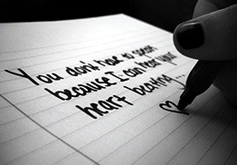 You don't have to speak
because I can hear your
heart beating...